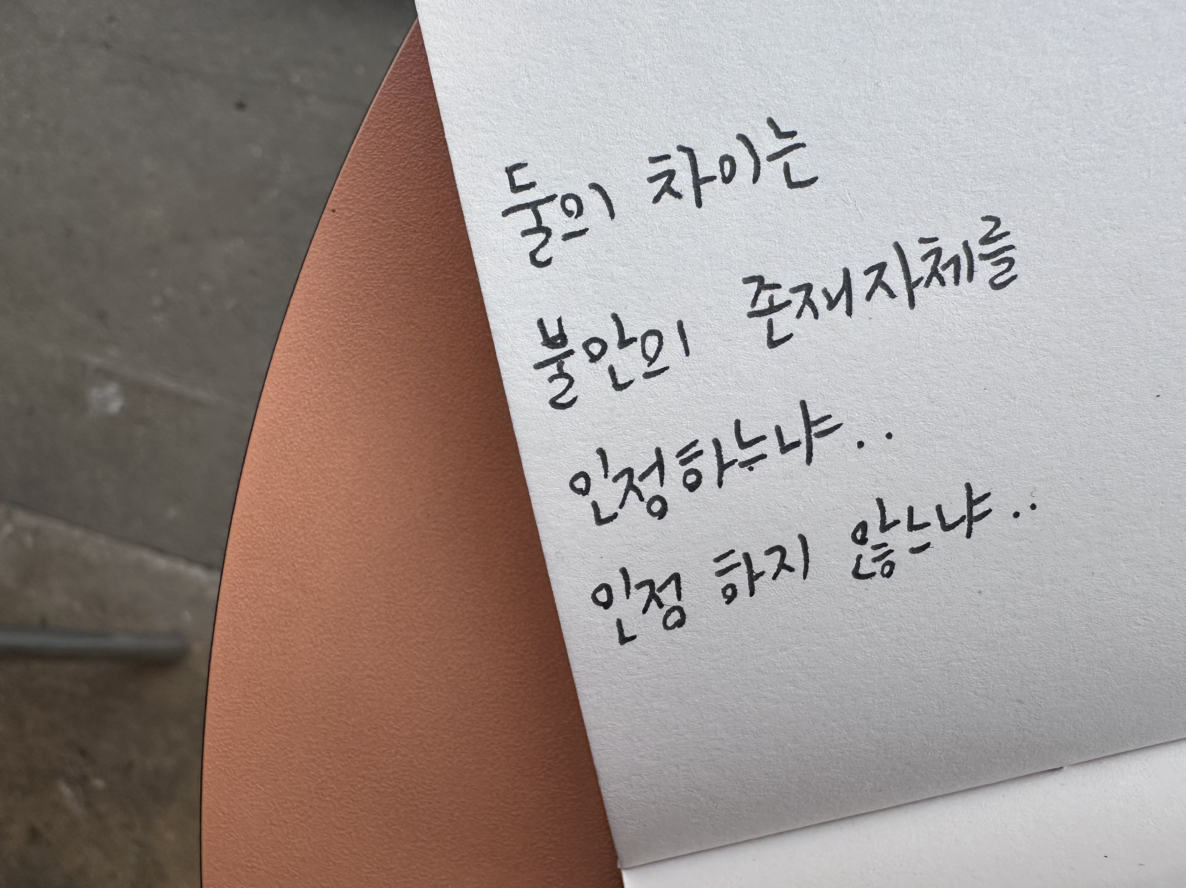 둘의 차이는
불안의 존재자체를
인정하느냐..
인정 하지 않느냐..